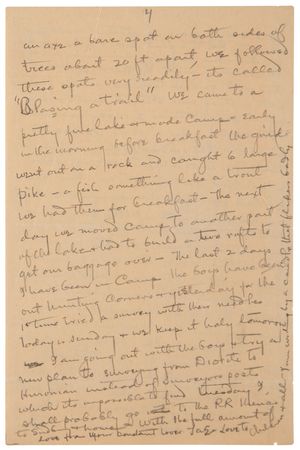 4
an axe a bare spot on both sides of
trees about 20 ft apart, we followed
these spots very readily - its called
"Blazing a trail" We came to a
pretty fine lake & made Camp - early
in the morning before breakfast the guide
went out on a rock and caught 6 large
Pike - a fish something like a trout
we had them for breakfast - The next
day we moved Camp to another part
of the lake & had to build a two rafts to
get our baggage over - The last 2 days
I have been in Camp the boys have been
out hunting Corners & yesterday for the
1st time tried a survey with their needles
Today is Sunday & we keep it holy tomorrow
I am going out with the boys & try a
new plan to surveying from
Huronian instead of surveyors posts
which its impossible to find Tuesday I
shall probably go to the RR thence
to & home With the full amount of
Love from Your constant lover Love to
& all by a candle that flickers badly